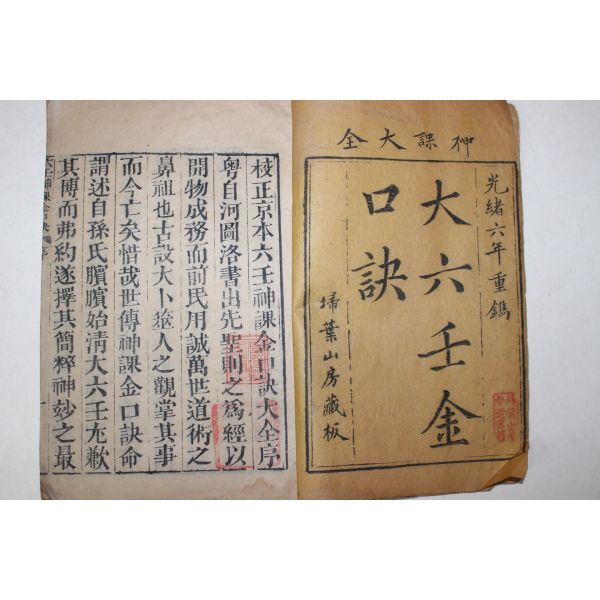 神課大全
光緒六年重鐫
大六壬金
口訣
埽葉山房藏板
校正京本六壬神課金口訣大全序
粵自河圖洛書出先聖則之為經以
開物成務而前民用誠萬世道術之
鼻祖也古設大卜筮人之觀掌其事
而今亡矣惜哉世傳神課金口訣命
謂述自孫氏臏臏始清大六壬尢歉
其博而弗約遂擇其簡粹神妙之最